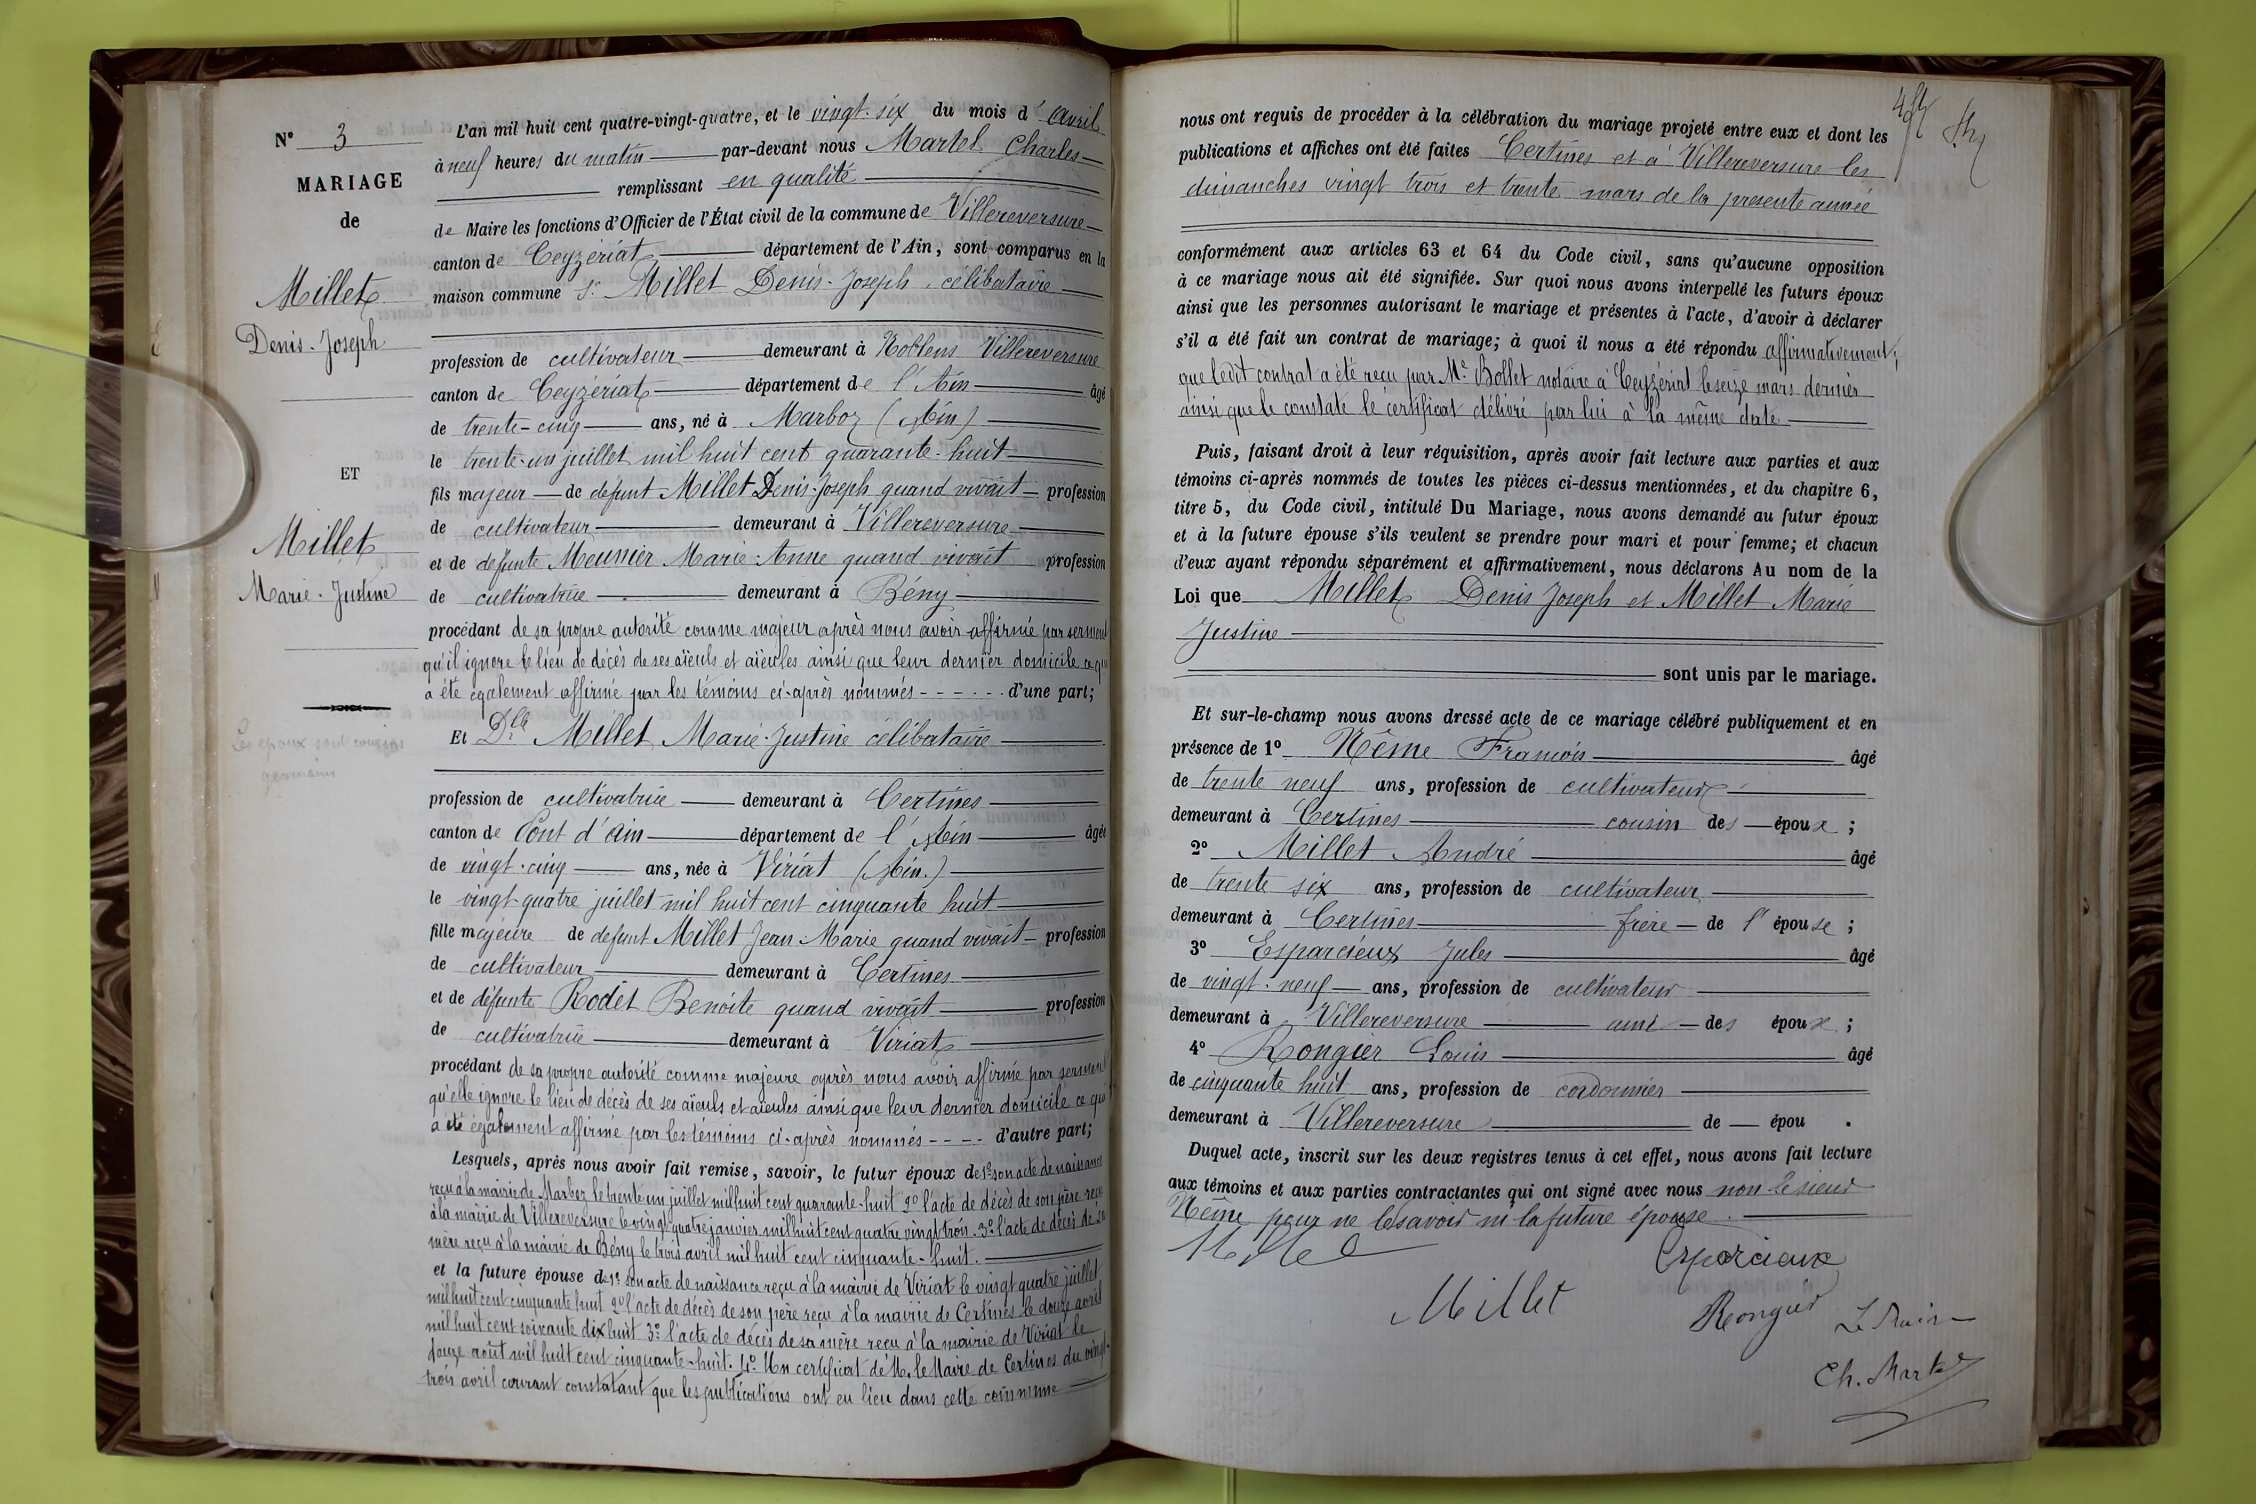 N° 3
MARIAGE
de
Millet
Denis-Joseph
ET
Millet
Marie-Justine
Les époux sont cousins
germains
L'an mil huit cent quatre-vingt-quatre, et le vingt-six du mois d'avril
à neuf heures du matin par-devant nous Martel Charles
remplissant en qualité
de Maire les fonctions d'Officier de l'État civil de la commune de Villereversure
canton de Ceyzériat département de l'Ain, sont comparus en la
maison commune Sr Millet Denis-Joseph, célibataire
profession de cultivateur demeurant à Noblens Villereversure
canton de Ceyzériat département de l'Ain âgé
de trente-cinq ans, né à Marboz (Ain)
le trente-un juillet mil huit cent quarante-huit
fils majeur de défunt Millet Denis-Joseph quand vivait profession
de cultivateur demeurant à Villereversure
et de défunte Meunier Marie-Anne quand vivait profession
de cultivatrice demeurant à Bény
procédant de sa propre autorité comme majeur après nous avoir affirmé par serment
qu'il ignore le lieu de décès de ses aïeuls et aïeules ainsi que leur dernier domicile ce qui
a été également affirmé par les témoins ci-après nommés - - - - - - d'une part;
Et Dlle Millet Marie-Justine célibataire
profession de cultivatrice demeurant à Certines
canton de Pont d'Ain département de l'Ain âgée
de vingt-cinq ans, née à Viriat (Ain.)
le vingt-quatre juillet mil huit cent cinquante huit
fille majeure de défunt Millet Jean-Marie quand vivait profession
de cultivateur demeurant à Certines
et de défunte Rodet Benoite quand vivait profession
de cultivatrice demeurant à Viriat
procédant de sa propre autorité comme majeure après nous avoir affirmé par serment
qu'elle ignore le lieu de décès de ses aïeuls et aïeules ainsi que leur dernier domicile ce qui
a été également affirmé par les témoins ci-après nommés - - - - d'autre part;
Lesquels, après nous avoir fait remise, savoir, le futur époux de 1° son acte de naissance
reçu à la mairie de Marboz le trente un juillet mil huit cent quarante-huit 2° l'acte de décès de son père reçu
à la mairie de Villereversure le vingt quatre janvier mil huit cent quatre vingt trois. 3° l'acte de décès de sa
mère reçu à la mairie de Bény le trois avril mil huit cent cinquante-huit.
et la future épouse de 1° son acte de naissance reçu à la mairie de Viriat le vingt quatre juillet
mil huit cent cinquante huit 2° l'acte de décès de son père reçu à la mairie de Certines le douze avril
mil huit cent soixante dix huit 3° l'acte de décès de sa mère reçu à la mairie de Viriat le
douze août mil huit cent cinquante-huit. 4° Un certificat de M. le Maire de Certines du vingt-
trois avril courant constatant que les publications ont eu lieu dans cette commune
nous ont requis de procéder à la célébration du mariage projeté entre eux et dont les
publications et affiches ont été faites Certines et à Villereversure les
dimanches vingt trois et trente mars de la présente année
conformément aux articles 63 et 64 du Code civil, sans qu'aucune opposition
à ce mariage nous ait été signifiée. Sur quoi nous avons interpellé les futurs époux
ainsi que les personnes autorisant le mariage et présentes à l'acte, d'avoir à déclarer
s'il a été fait un contrat de mariage; à quoi il nous a été répondu affirmativement,
que ledit contrat a été reçu par Me Bollet notaire à Ceyzériat le seize mars dernier
ainsi que le constate le certificat délivré par lui à la même date
Puis, faisant droit à leur réquisition, après avoir fait lecture aux parties et aux
témoins ci-après nommés de toutes les pièces ci-dessus mentionnées, et du chapitre 6,
titre 5, du Code civil, intitulé Du Mariage, nous avons demandé au futur époux
et à la future épouse s'ils veulent se prendre pour mari et pour femme; et chacun
d'eux ayant répondu séparément et affirmativement, nous déclarons Au nom de la
Loi que Millet Denis Joseph et Millet Marie
Justine
sont unis par le mariage.
Et sur-le-champ nous avons dressé acte de ce mariage célébré publiquement et en
présence de 1° Nême François âgé
de trente neuf ans, profession de cultivateur
demeurant à Certines cousin des époux ;
2° Millet André âgé
de trente six ans, profession de cultivateur
demeurant à Certines frère de l'épouse ;
3° Esparcieux Jules âgé
de vingt-neuf ans, profession de cultivateur
demeurant à Villereversure ami des époux ;
4° Rongier Louis âgé
de cinquante huit ans, profession de cordonnier
demeurant à Villereversure de épou .
Duquel acte, inscrit sur les deux registres tenus à cet effet, nous avons fait lecture
aux témoins et aux parties contractantes qui ont signé avec nous non le sieur
Nême pour ne le savoir ni la future épouse.
Millet Esparcieux
Millet Rongier Le Maire
Ch. Martel